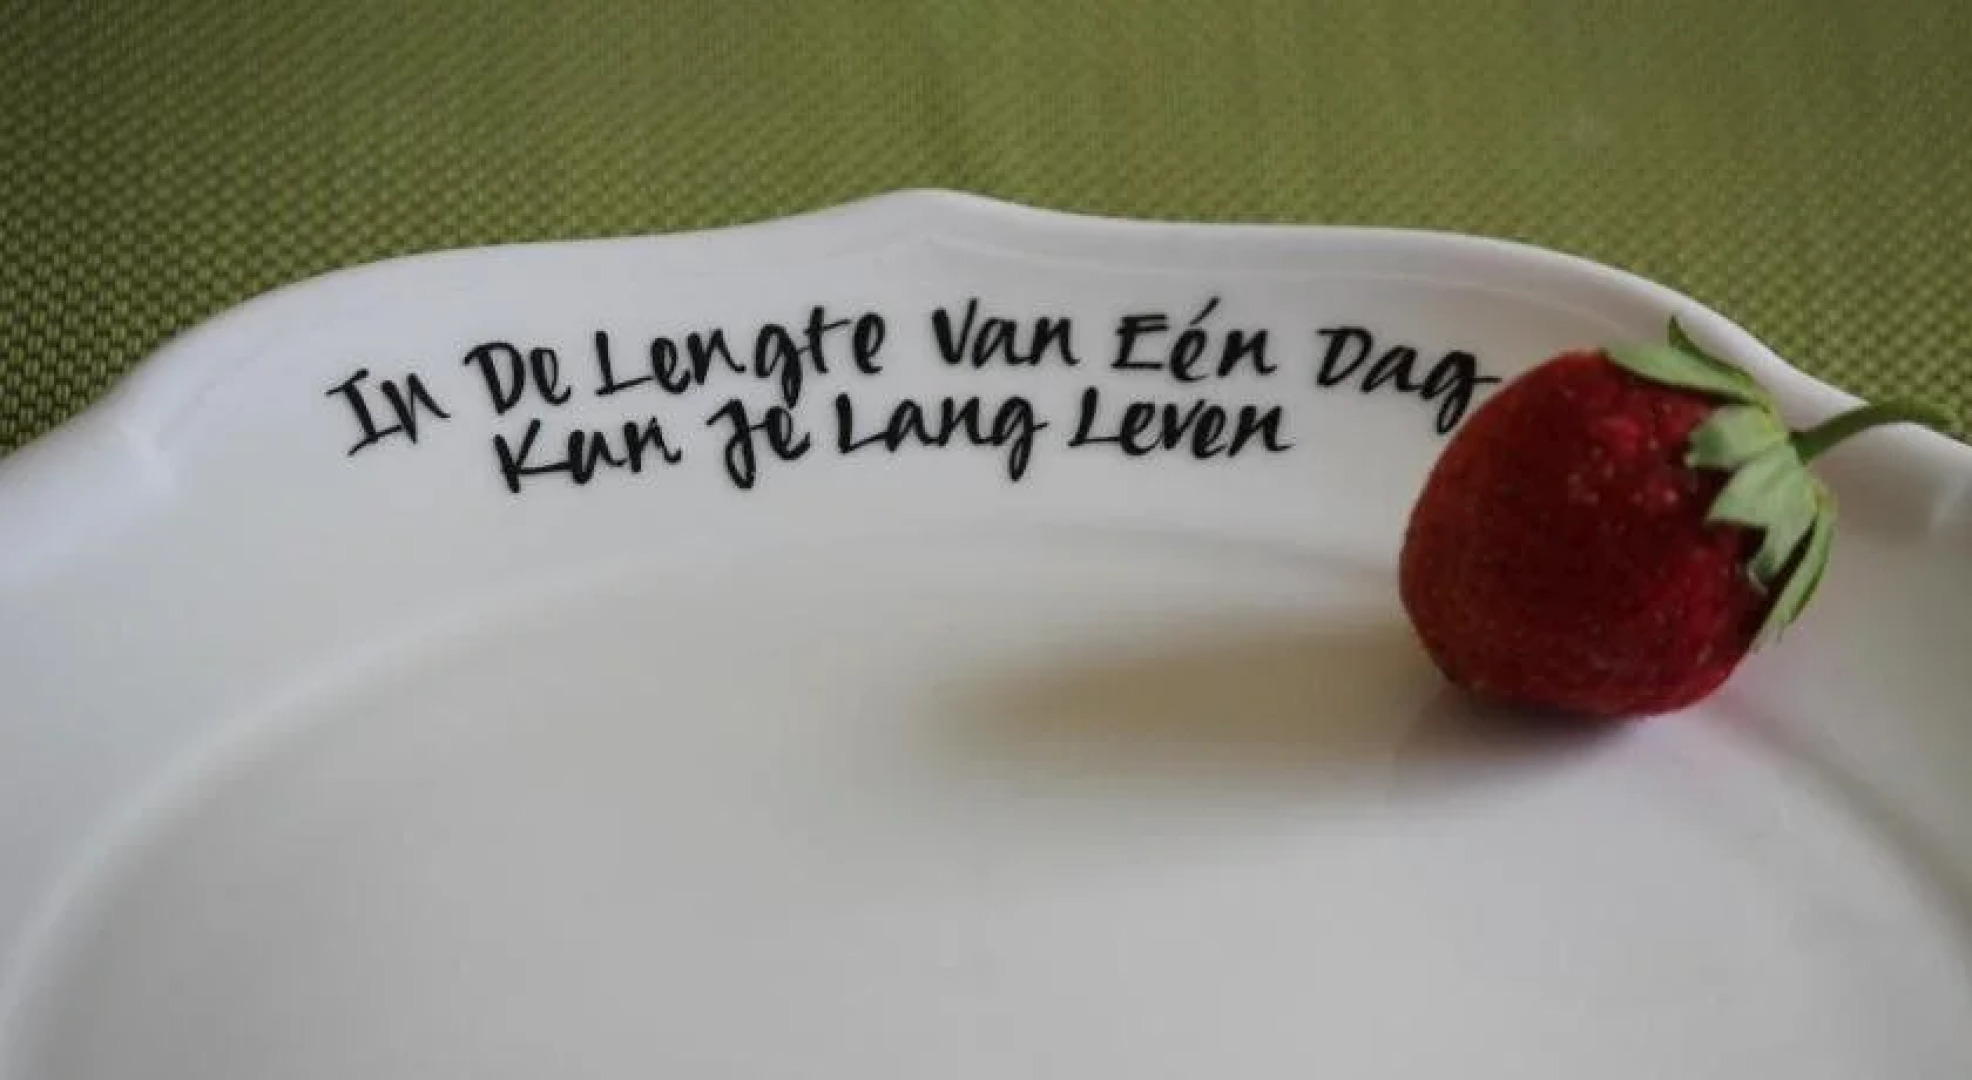 In De Lengte Van Eén Dag
Kun Je Lang Leven